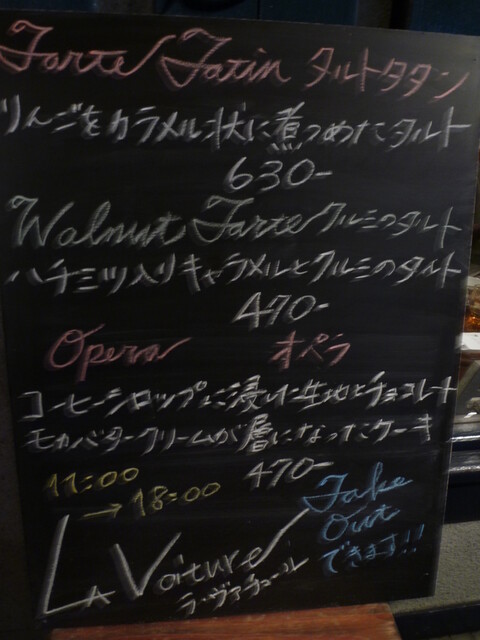 Tarte Tatin タルトタタン
りんごをカラメル状に煮つめたタルト
630-
Walnut Tarte クルミのタルト
ハチミツ入りキャラメルとクルミのタルト
470-
Opera オペラ
コーヒーシロップに浸した生地とチョコレート
モカバタークリームが層になったケーキ
470-
11:00
→ 18:00
Take
Out
できます!!
La Voiture
ラ・ヴァチュール